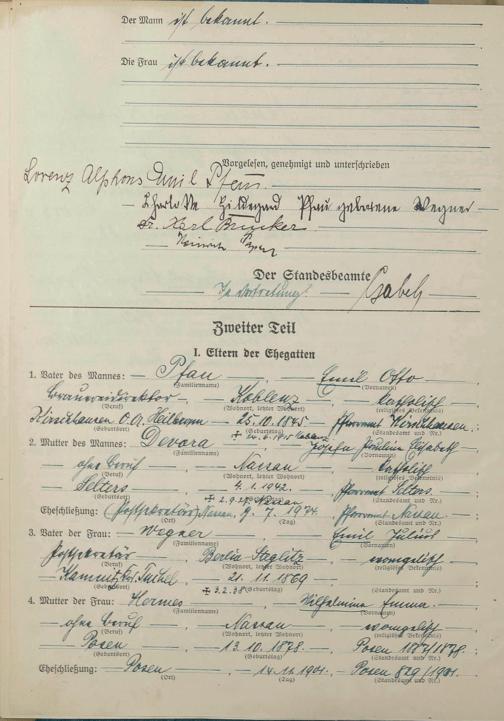 Der Mann ist bekannt.
Die Frau ist bekannt.
Vorgelesen, genehmigt und unterschrieben
Lorenz Alphons Emil Pfau
Charlotte Hildegard Pfau geborene Wegner
Dr. Karl Brucker
Heinrich
Der Standesbeamte
In Vertretung!
Zweiter Teil
I. Eltern der Ehegatten
1. Vater des Mannes: Pfau Emil Otto
(Familienname) (Vornamen)
Brauereidirektor Koblenz katholisch
(Beruf) (Wohnort, letzter Wohnort) (religiöses Bekenntnis)
Kirschhausen O.A. Heilbronn 25.10.1875 Pfarramt Kirschhausen
(Geburtsort) (Geburtstag) (Standesamt und Nr.)
2. Mutter des Mannes: Devora Josefa Paulina Elisabeth
(Familienname) (Vornamen)
ohne Beruf Nassau katholisch
(Beruf) (Wohnort, letzter Wohnort) (religiöses Bekenntnis)
Selters Pfarramt Selters
(Geburtsort) (Geburtstag) (Standesamt und Nr.)
Eheschließung: Nassau Pfarramt Nassau
(Ort) (Tag) (Standesamt und Nr.)
3. Vater der Frau: Wegner Emil Julius
(Familienname) (Vornamen)
Postsekretär Berlin Steglitz evangelisch
(Beruf) (Wohnort, letzter Wohnort) (religiöses Bekenntnis)
Kamnitz Krs. Tuchel 21.11.1869
(Geburtsort) (Geburtstag) (Standesamt und Nr.)
4. Mutter der Frau: Hermes Wilhelmine Emma
(Familienname) (Vornamen)
ohne Beruf Nassau evangelisch
(Beruf) (Wohnort, letzter Wohnort) (religiöses Bekenntnis)
Posen 13.10.1878 Posen
(Geburtsort) (Geburtstag) (Standesamt und Nr.)
Eheschließung: Posen 14.11.1901 Posen 829/1901
(Ort) (Tag) (Standesamt und Nr.)